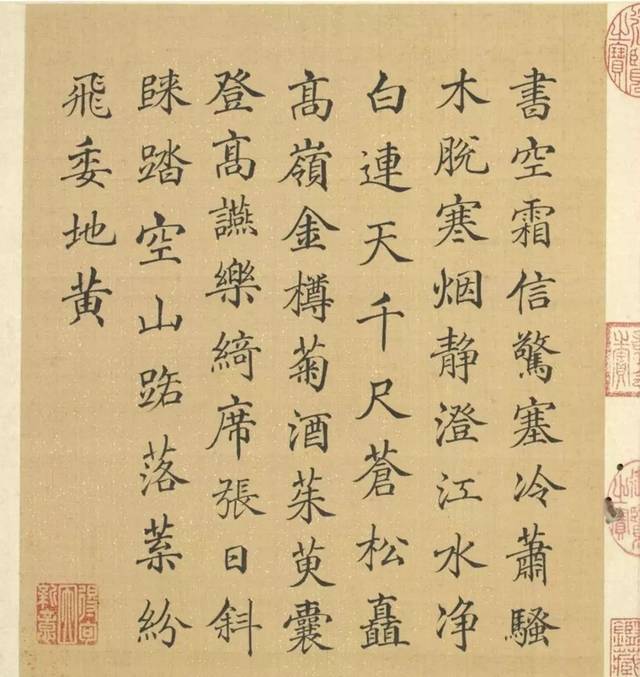 書空霜信驚塞冷蕭騷
木脫寒烟静澄江水净
白連天千尺蒼松矗
髙嶺金樽菊酒茱萸囊
登髙讌樂綺席張日斜
踏空山路落葉紛
飛委地黄